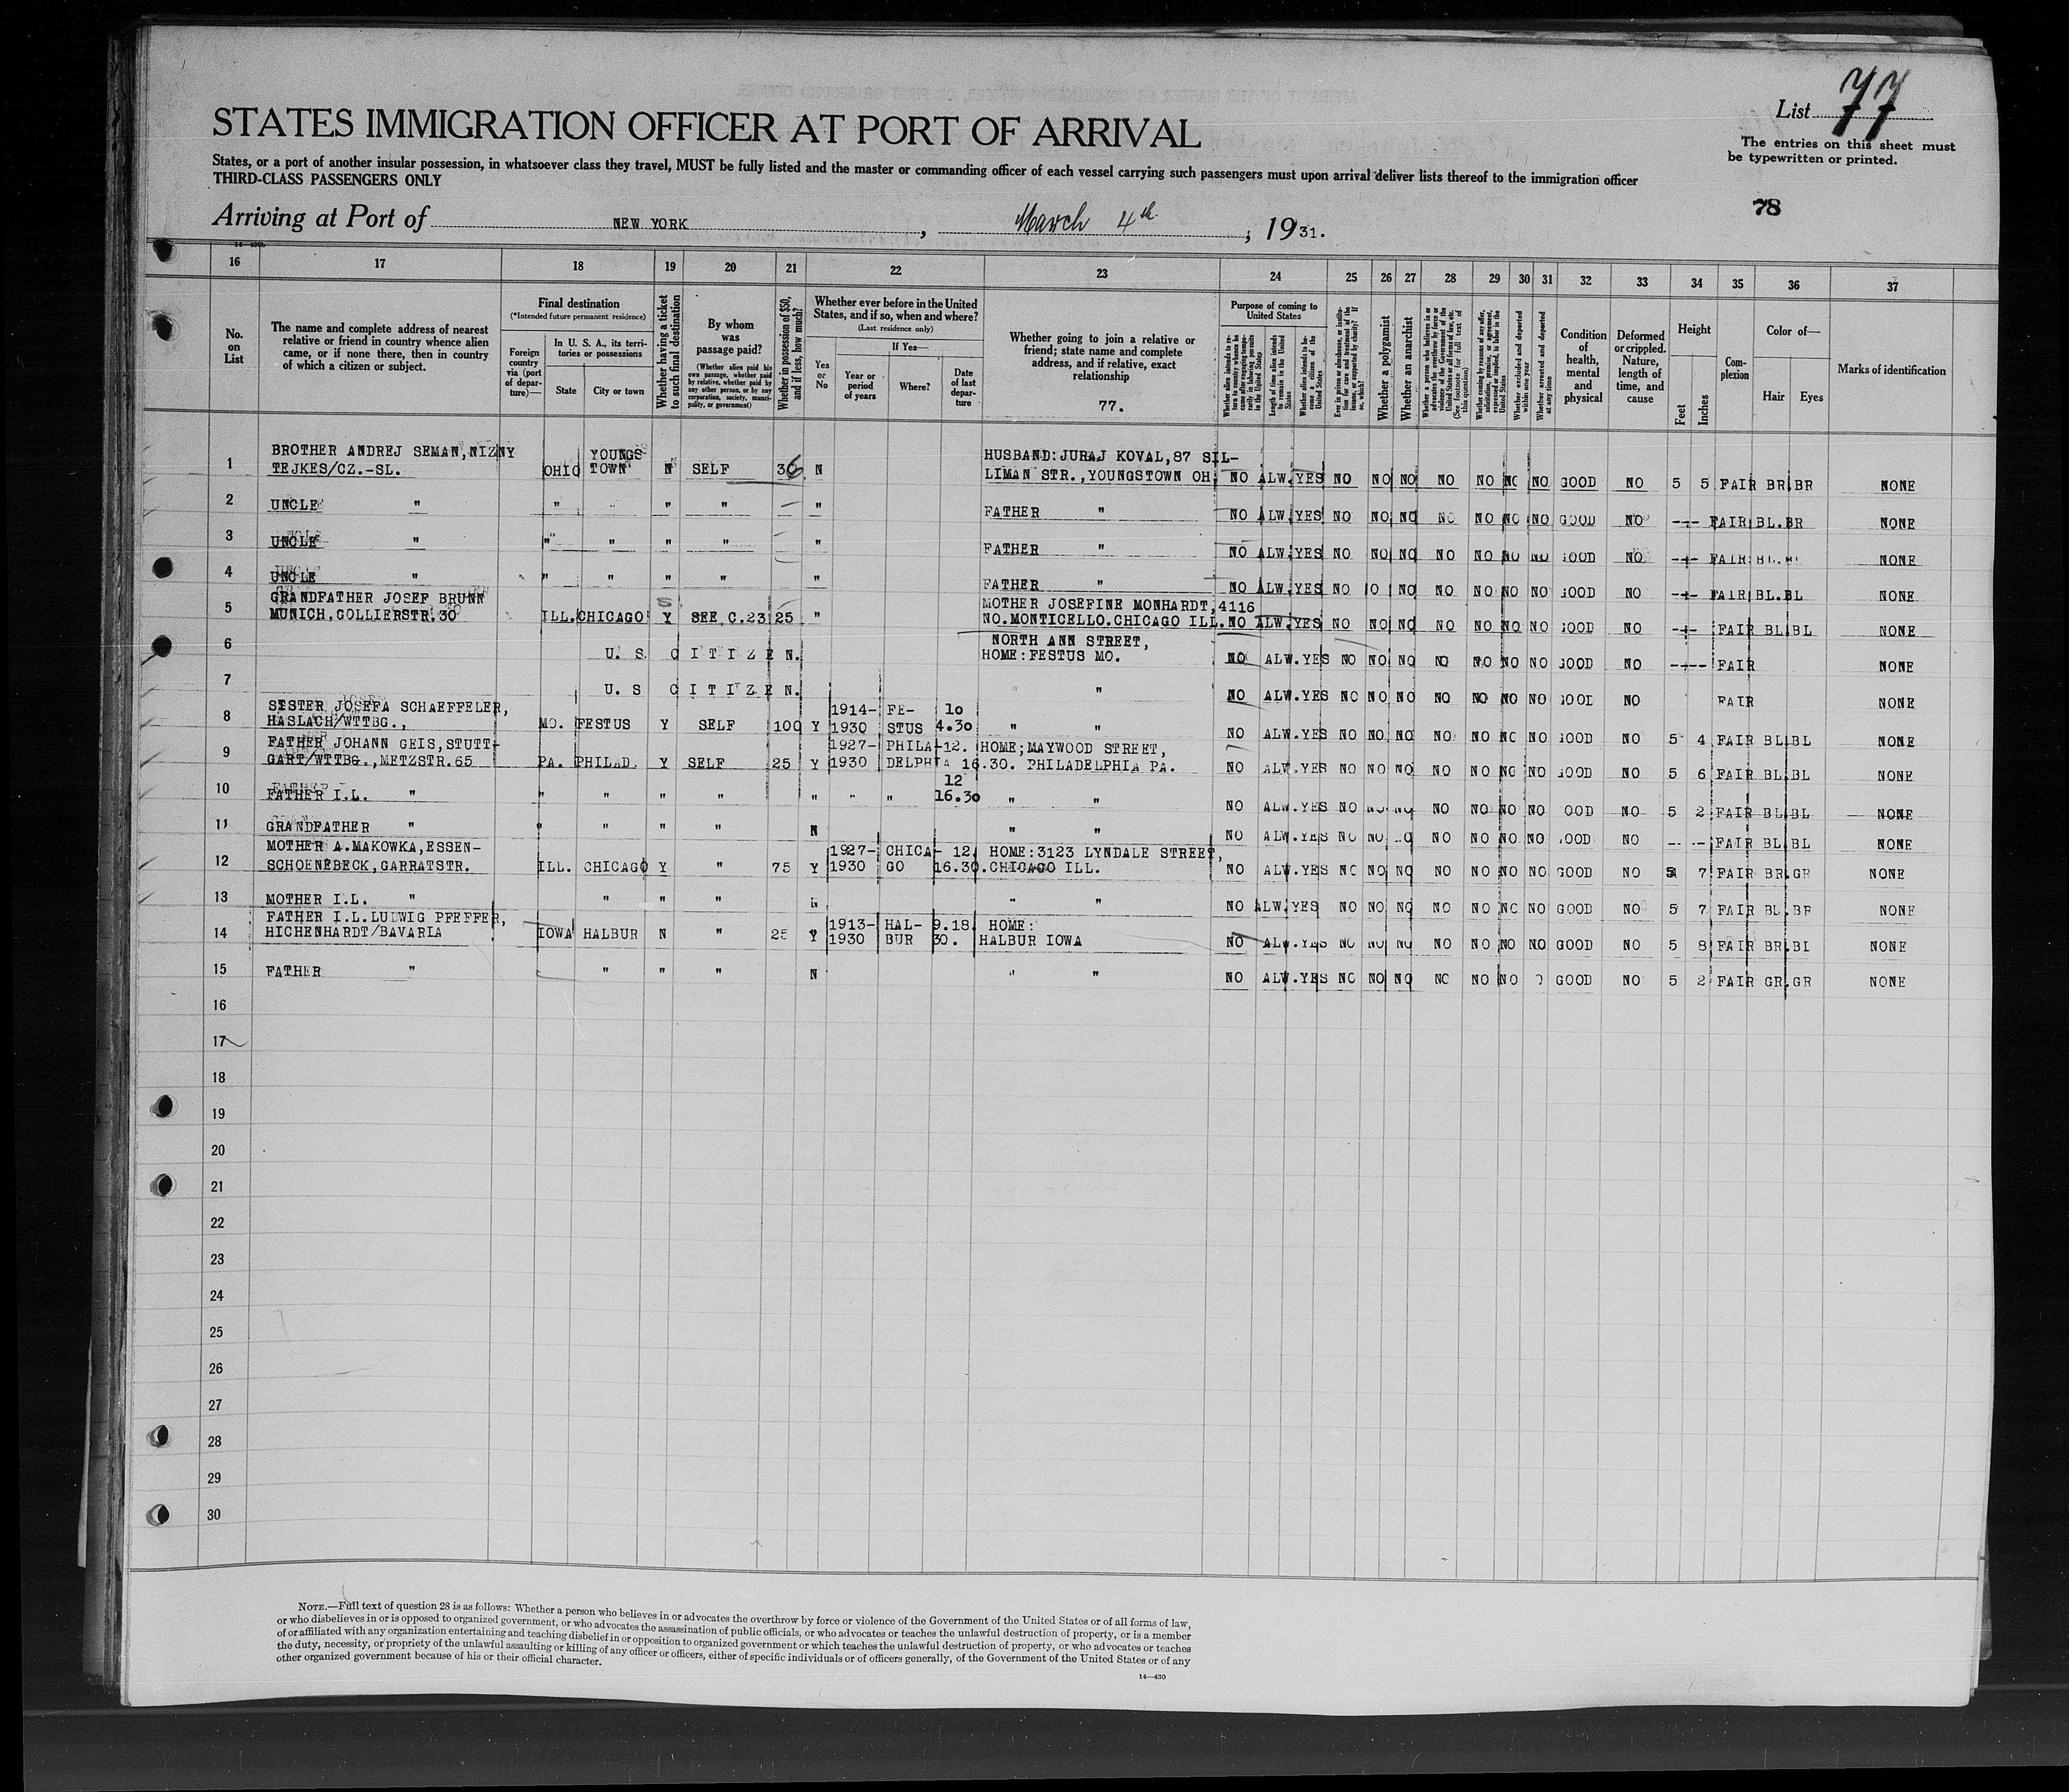 List 77
STATES IMMIGRATION OFFICER AT PORT OF ARRIVAL
The entries on this sheet must
be typewritten or printed.
States, or a port of another insular possession, in whatsoever class they travel, MUST be fully listed and the master or commanding officer of each vessel carrying such passengers must upon arrival deliver lists thereof to the immigration officer
THIRD-CLASS PASSENGERS ONLY
78
Arriving at Port of NEW YORK, March 4th, 1931.
16 17 18 19 20 21 22 23 24 25 26 27 28 29 30 31 32 33 34 35 36 37
No. on List
The name and complete address of nearest
relative or friend in country whence alien
came, or if none there, then in country
of which a citizen or subject.
Final destination
(*Intended future permanent residence)
Foreign
country
via (port
of depar-
ture)—
In U. S. A., its terri-
tories or possessions
State City or town
Whether having a ticket
to such final destination
By whom
was
passage paid?
(Whether alien paid his
own passage, whether paid
by relative, whether paid by
any other person, or by any
corporation, society, munici-
pality, or government)
Whether in possession of $50,
and if less, how much?
Whether ever before in the United
States, and if so, when and where?
(Last residence only)
Yes
or
No
If Yes—
Year or
period
of years
Where?
Date
of last
depar-
ture
Whether going to join a relative or
friend; state name and complete
address, and if relative, exact
relationship
77.
Purpose of coming to
United States
Whether a polygamist
Whether an anarchist
Whether excluded and deported
within one year
Whether arrested and deported
at any time
Condition
of
health,
mental
and
physical
Deformed
or crippled.
Nature,
length of
time, and
cause
Height
Feet Inches
Com-
plexion
Color of—
Hair Eyes
Marks of identification
BROTHER ANDREJ SEMAN,NIZNY YOUNGS HUSBAND:JURAJ KOVAL,87 SIL-
1 TEJKES/CZ.-SL. OHIO TOWN N SELF 36 N LIMAN STR.,YOUNGSTOWN OH. NO ALW.YES NO NO NO NO NO NO NO GOOD NO 5 5 FAIR BR.BR NONE
2 UNCLE " " " " " " FATHER " NO ALW.YES NO NO NO NO NO NO NO GOOD NO --- FAIR BL.BR NONE
3 UNCLE " " " " " " FATHER " NO ALW.YES NO NO NO NO NO NO NO GOOD NO --- FAIR BL. NONE
4 UNCLE " " " " " " FATHER " NO ALW.YES NO O NO NO NO NO NO GOOD NO --- FAIR BL.BL NONE
GRANDFATHER JOSEF BRUNN MOTHER JOSEFINE MONHARDT,4116
5 MUNICH,GOLLIERSTR.30 ILL.CHICAGO Y SEE C.23 25 " NO.MONTICELLO.CHICAGO ILL. NO ALW.YES NO NO NO NO NO NO NO GOOD NO --- FAIR BL BL NONE
NORTH ANN STREET,
6 U. S. CITIZEN. HOME:FESTUS MO. NO ALW.YES NO NO NO NO NO NO NO GOOD NO ---- FAIR NONE
7 U. S CITIZEN. " " NO ALW.YES NO NO NO NO NO NO NO GOOD NO FAIR NONE
SISTER JOSEFA SCHAEFFELER, 1914- FE- 10
8 HASLACH/WTTBG., MO. FESTUS Y SELF 100 Y 1930 STUS 4.30 " " NO ALW.YES NO NO NO NO NO NO NO GOOD NO 5 4 FAIR BL BL NONE
FATHER JOHANN GEIS,STUTT- 1927- PHILA- 12. HOME;MAYWOOD STREET,
9 GART/WTTBG.,METZSTR.65 PA. PHILAD. Y SELF 25 Y 1930 DELPHIA 16.30. PHILADELPHIA PA. NO ALW.YES NO NO NO NO NO NO NO GOOD NO 5 6 FAIR BL BL NONE
12
10 FATHER I.L. " " " " " " " " 16.30 " " NO ALW.YES NO NO NO NO NO NO NO OOD NO 5 2 FAIR BL BL NONE
11 GRANDFATHER " " " " " N " " NO ALW.YES NO NO NO NO NO NO NO GOOD NO - - FAIR BL BL NONE
MOTHER A.MAKOWKA,ESSEN- 1927- CHICA- 12. HOME:3123 LYNDALE STREET,
12 SCHOENEBECK,GARRATSTR. ILL. CHICAGO Y " 75 Y 1930 GO 16.30. CHICAGO ILL. NO ALW.YES NO NO NO NO NO NO NO GOOD NO 5 7 FAIR BR.GR NONE
13 MOTHER I.L. " " " " " " " NO ALW.YES NO NO NO NO NO NO NO GOOD NO 5 7 FAIR BL.BR NONE
FATHER I.L.LUDWIG PFEFFER, 1913- HAL- 9.18. HOME:
14 HICHENHARDT/BAVARIA IOWA HALBUR N " 25 Y 1930 BUR 30. HALBUR IOWA NO ALW.YES NO NO NO NO NO NO NO GOOD NO 5 8 FAIR BR.BL NONE
15 FATHER " " " " N " " NO ALW.YES NO NO NO NO NO NO O GOOD NO 5 2 FAIR GR.GR NONE
16
17
18
19
20
21
22
23
24
25
26
27
28
29
30
NOTE.—Full text of question 28 is as follows: Whether a person who believes in or advocates the overthrow by force or violence of the Government of the United States or of all forms of law,
or who disbelieves in or is opposed to organized government, or who advocates the assassination of public officials, or who advocates or teaches the unlawful destruction of property, or is a member
of or affiliated with any organization entertaining and teaching disbelief in or opposition to organized government or which teaches the unlawful destruction of property, or who advocates or teaches
the duty, necessity, or propriety of the unlawful assaulting or killing of any officer or officers, either of specific individuals or of officers generally, of the Government of the United States or of any
other organized government because of his or their official character.
14—430